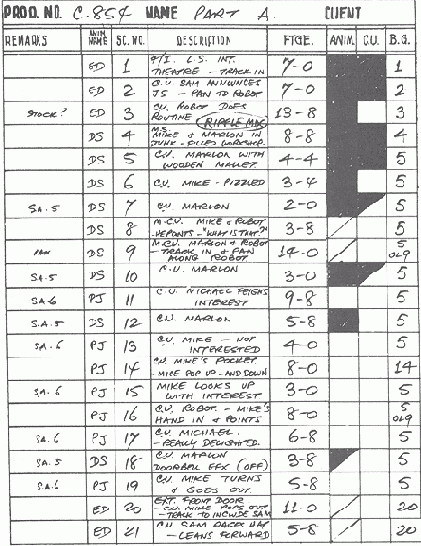 PROD. NO. C.854 NAME PART A. CLIENT
REMARKS ANIM NAME SC. NO. DESCRIPTION FTGE. ANIM. C.U. B.G.
ED 1 L.S. INT. THEATRE - TRACK IN 7-0 1
ED 2 C.U SAM ANNOUNCES JS - PAN TO ROBOT 7-0 2
STOCK? ED 3 C.U. ROBOT DOES ROUTINE (RIPPLE MIX) 13-8 3
DS 4 M.S. MIKE & MARLON IN JUNK - FILLED WORKSHOP. 8-8 4
DS 5 C.U. MARLON WITH WOODEN MALLET. 4-4 5
DS 6 C.U. MIKE - PUZZLED 3-4 5
SA.5 DS 7 CU MARLON 2-0 5
DS 8 M.C.U. MIKE & ROBOT - "WHAT IS THAT?" 3-8 5
PAN DS 9 M.C.U. MARLON & ROBOT - TRACK IN & PAN ALONG ROBOT. 14-0 5 OL9
SA.5 DS 10 C.U. MARLON 3-0 5
SA6 PJ 11 C.U. MICHAEL FEIGNS INTEREST 9-8 5
S.A.5 DS 12 C.U. MARLON 5-8 5
S.A.6 PJ 13 C.U. MIKE - NOT INTERESTED 4-0 5
PJ 14 C.U MIKE'S POCKET. - MICE POP UP - AND DOWN 8-0 14
S.A.6 PJ 15 MIKE LOOKS UP WITH INTEREST 3-0 5
PJ 16 C.U. ROBOT - MIKE'S HAND IN & POINTS 8-0 5 OL9
SA.6 PJ 17 C.U. MICHAEL - REALLY DELIGHTED. 6-8 5
S.A.5 DS 18 C.U MARLON DOORBELL EFX (OFF) 3-8 5
S.A.6 PJ 19 C.U. MIKE TURNS & GOES OUT. 5-8 5
ED 20 EXT. FRONT DOOR - TRACK TO INCLUDE SAM 11-0 20
ED 21 CU SAM - LEANS FORWARD 5-8 20